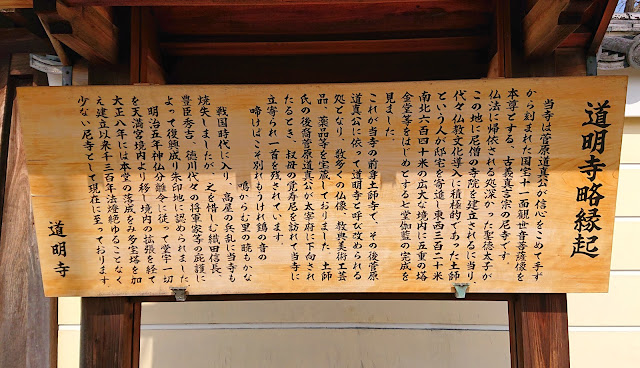 道明寺略縁起
当寺は菅原道真公が信心をこめて手ず
から刻まれた国宝十一面観世音菩薩像を
本尊とする、古義真言宗の尼寺です。
仏法に帰依される処深かった聖徳太子が
この地に尼僧の寺院を建立されるに当り
代々仏教文化導入に積極的であった土師
という人が邸宅を寄進し、東西三百二十米
南北六百四十米の広大な境内に五重の塔
金堂等をはじめとする七堂伽藍の完成を
見ました。
これが当寺の前身土師寺で、その後菅原
道真公に依って道明寺と呼び改められる
処となり、数多くの仏像、教典美術工芸
品、薬品等を宝蔵しておりました 土師
氏の後裔菅原道真公が太宰府に下向され
たるとき、叔母の覚寿尼を訪れて当寺に
立寄られ一首を残されています。
啼けばこそ別れもうけれ鶏の音の
鳴からむ里の暁もかな
戦国時代に入り、高屋の兵乱に当寺も
焼失しましたが、之を惜しむ織田信長、
豊臣秀吉、徳川代々の将軍家等の庇護に
よって復興成り朱印地に認められました
明治五年神仏分離令に従って堂宇一切
を天満宮境内より移し境内の拡張を経て
大正八年には本堂の落成をみ多宝塔を加
え建立以来千三百年法燈絶ゆることなく
少ない尼寺として現在に至っております
道明寺